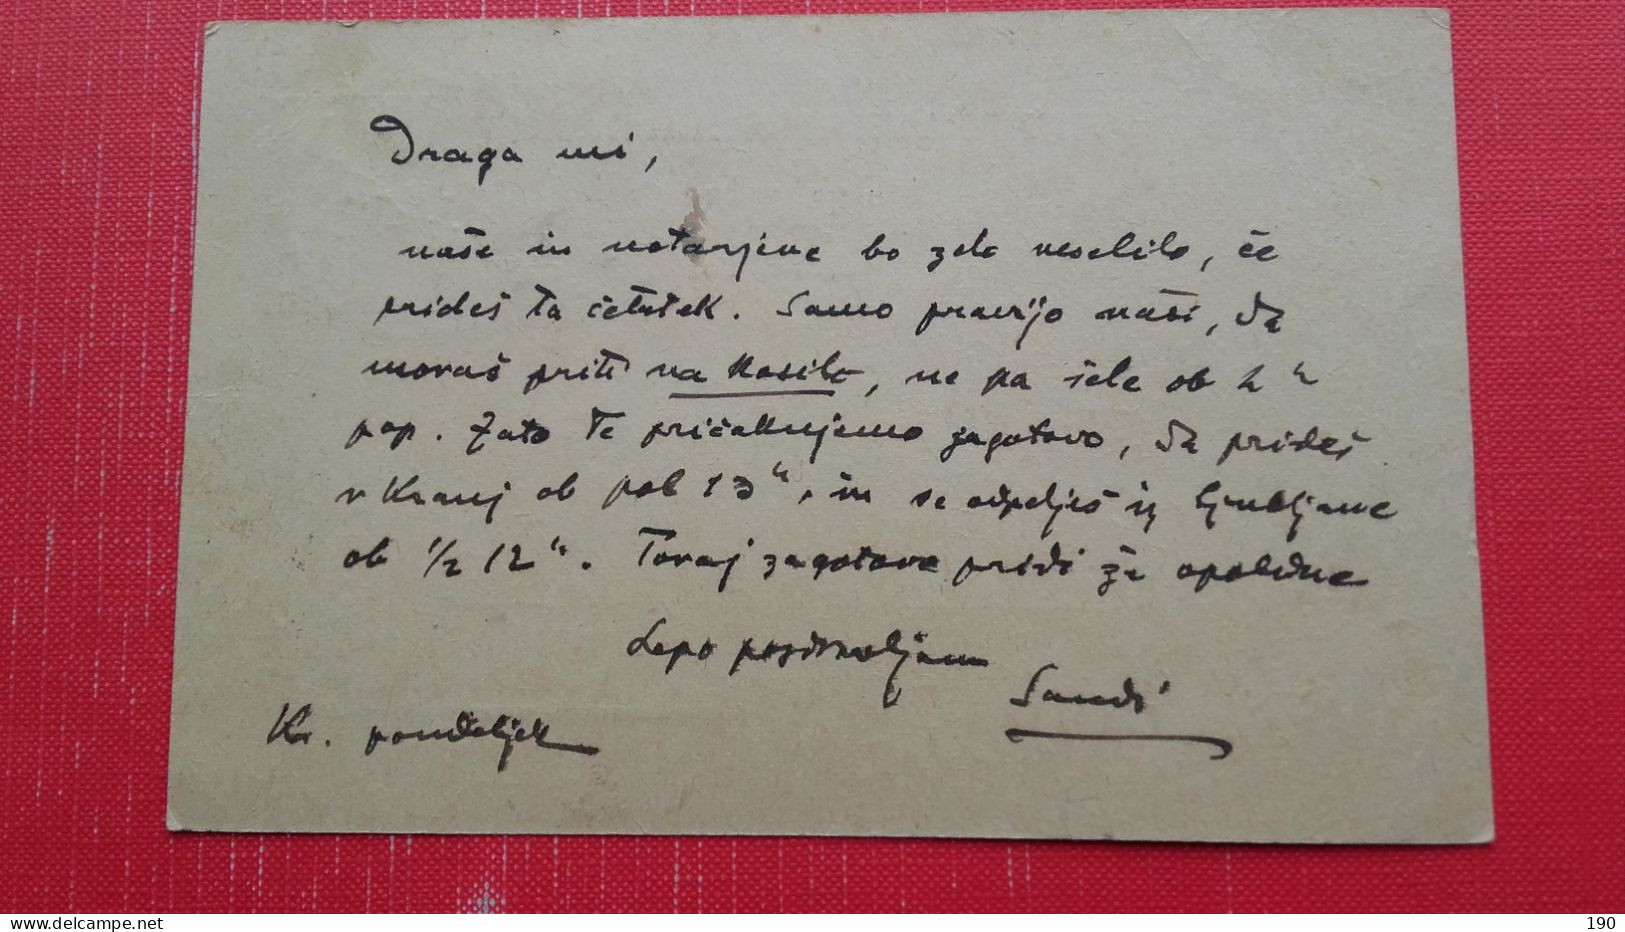 Draga mi,
naše in notarjeve bo zelo veselilo, če
prideš ta četrtek. Samo pravijo naši, da
moraš priti na kosilo, ne pa šele ob 2h
pop. Zato te pričakujemo zagotovo, da prideš
v Kranj ob pol 13h, in se odpelješ iz Ljubljane
ob 1/2 12h. Torej zagotovo pridi že opoldne
Lepo pozdravljam
Sandi
Kr. pondeljek
www.delcampe.net
190